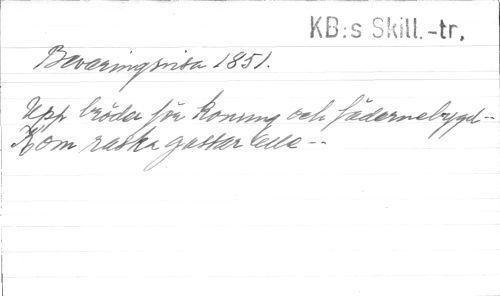 KB:s Skill.-tr.
Beväringsvisa 1851.
Upp bröder för konung och fädernebygd--
Kom raska gossar alla--